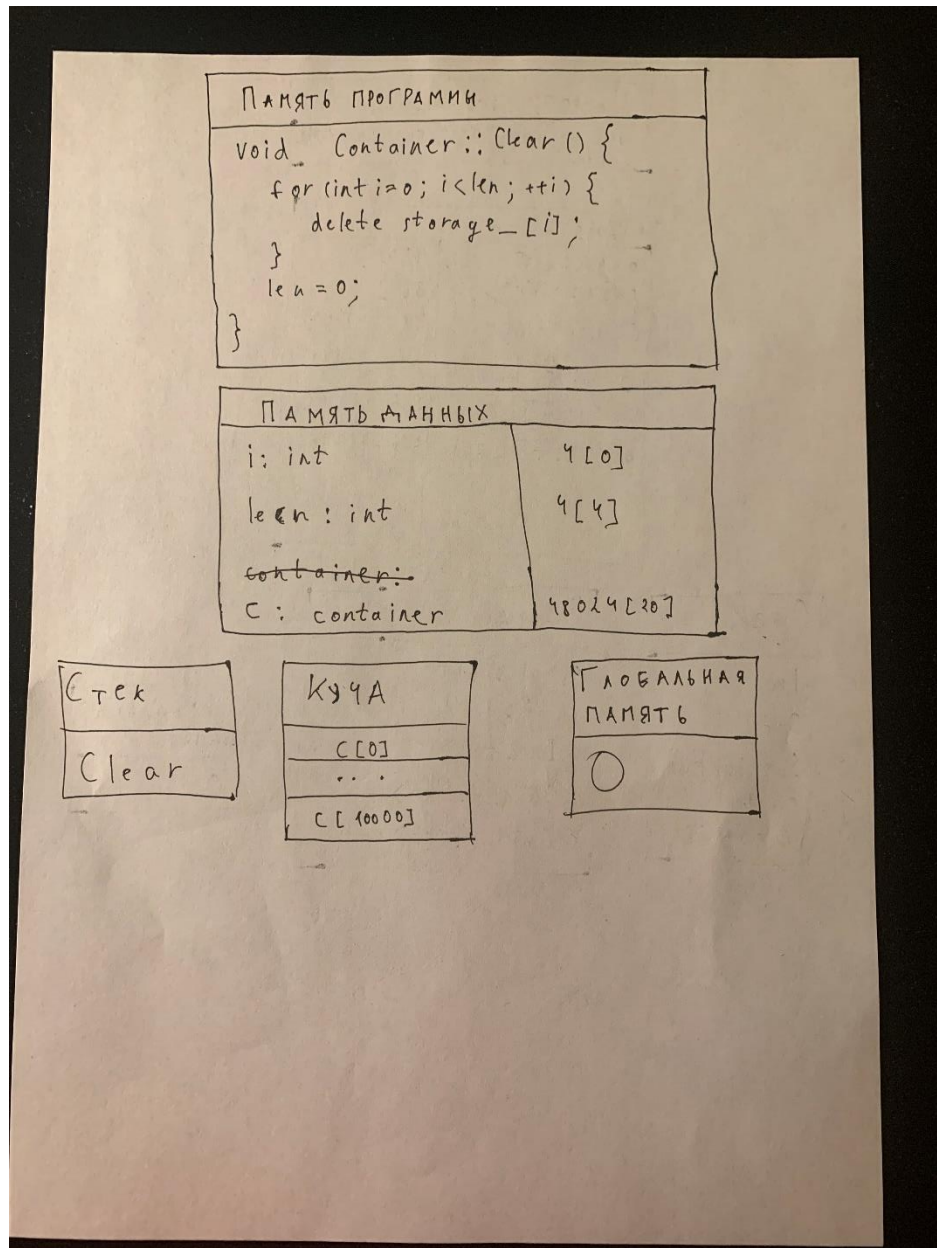 ПАМЯТЬ ПРОГРАММЫ
void Container::Clear() {
for (int i=0; i<len; ++i) {
delete storage_[i];
}
len = 0;
}
ПАМЯТЬ ДАННЫХ
i: int 4[0]
len: int 4[4]
container:
C: container 48024[20]
Стек
Clear
КУЧА
C[0]
...
C[10000]
ГЛОБАЛЬНАЯ
ПАМЯТЬ
0